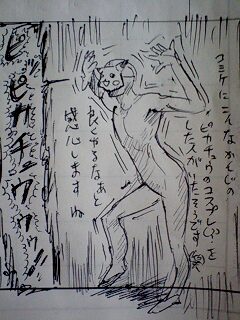 コミケにこんなかんじの
ピカチュウのコスプレ を
した人がいたそうです(笑)
良くやるなあと
感心しますね
ピ
ピカチュウウゥ!!